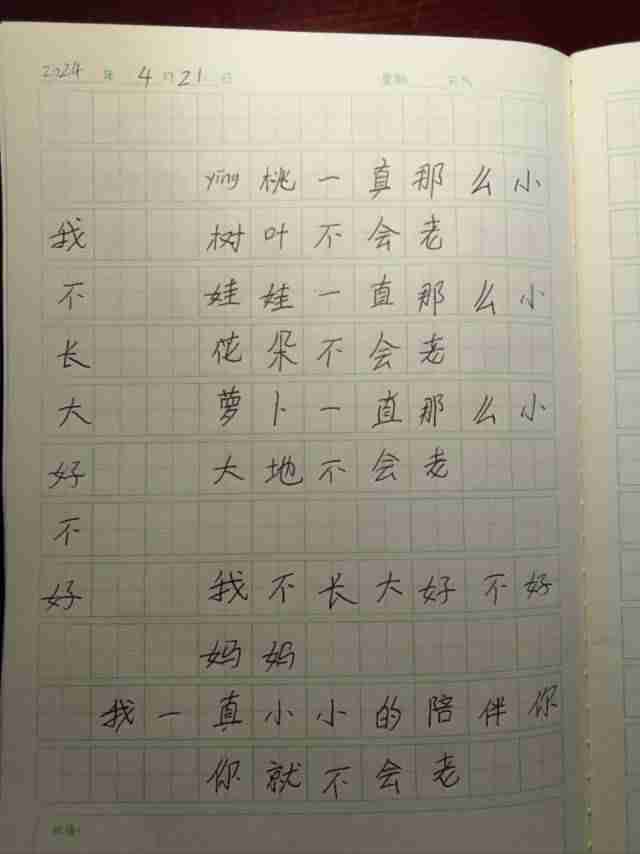 2024 年 4 月 21 日 星期 天气
我不长大好不好
yīng桃一真那么小
树叶不会老
娃娃一直那么小
花朵不会老
萝卜一直那么小
大地不会老
我不长大好不好
妈妈
我一真小小的陪伴你
你就不会老